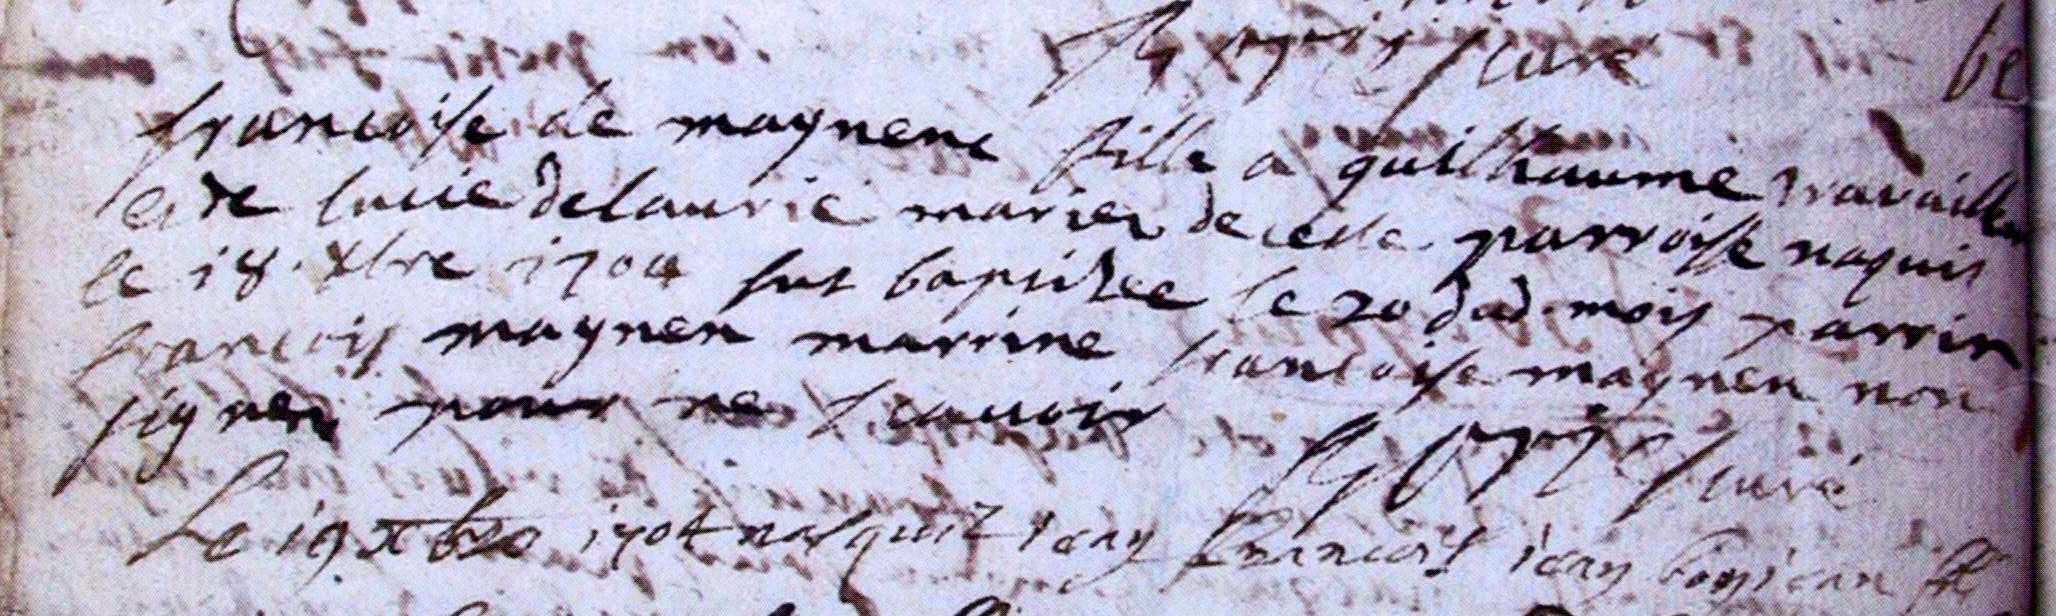 curé
be
francoise de maynenc fille a guilhaume travailleur
et de lucie delaurie maries de ceste parroisse naquit
le 18 Xbre 1704 fut baptisee le 20 dud. mois parrin
francois maynen marrine francoise maynen non
signes pour ne scavoir
curé
Le 19 1704 nasquit jean francois jean bonjean